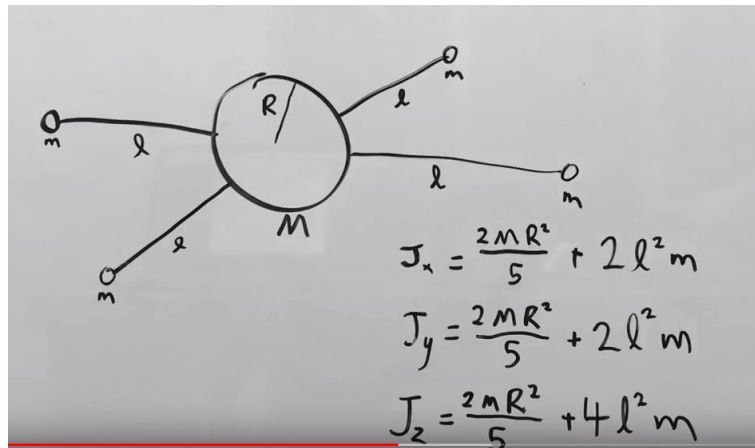 R
m
l
l
m
l
l
m
M
m
J_x = 2MR²/5 + 2l²m
J_y = 2MR²/5 + 2l²m
J_z = 2MR²/5 + 4l²m